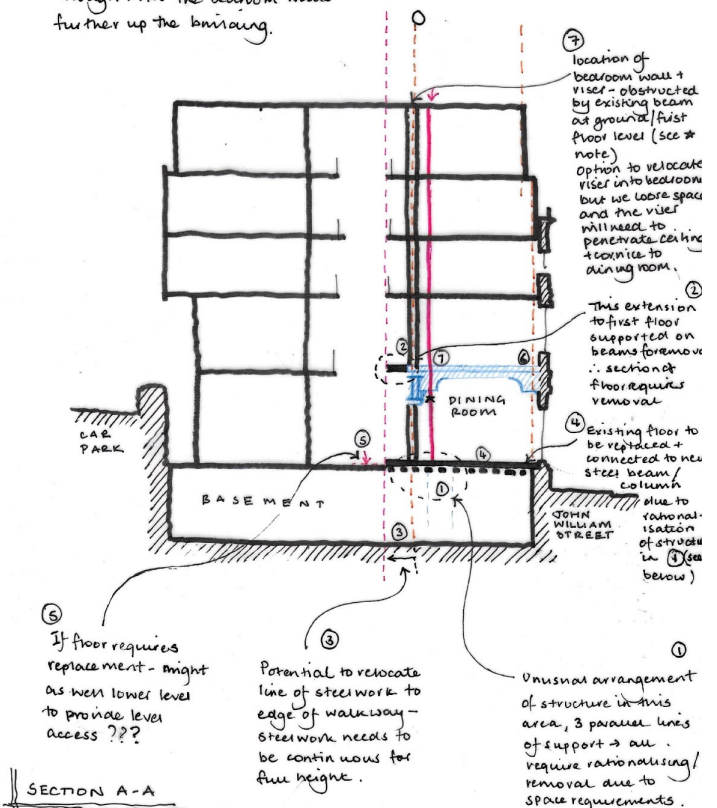 the bedroom
further up the building.
⑦
location of
bedroom wall +
riser - obstructed
by existing beam
at ground/first
floor level (see *
note)
option to relocate
riser into bedroom
but we loose space
and the riser
will need to
penetrate ceiling
+ cornice to
dining room.
②
This extension
to first floor
supported on
beams for remova
∴ section of
floor requires
removal
④
Existing floor to
be replaced +
connected to new
steel beam/
column
due to
rational-
isation
of structu
in ① (see
below)
② ⑦ ⑥
*
DINING
ROOM
CAR
PARK
⑤ ④
①
BASEMENT
③
JOHN
WILLIAM
STREET
⑤
If floor requires
replacement - might
as well lower level
to provide level
access ???
③
Potential to relocate
line of steelwork to
edge of walkway -
steelwork needs to
be continuous for
full height.
①
Unusual arrangement
of structure in this
area, 3 parallel lines
of support → all
require rationalising/
removal due to
space requirements.
SECTION A-A